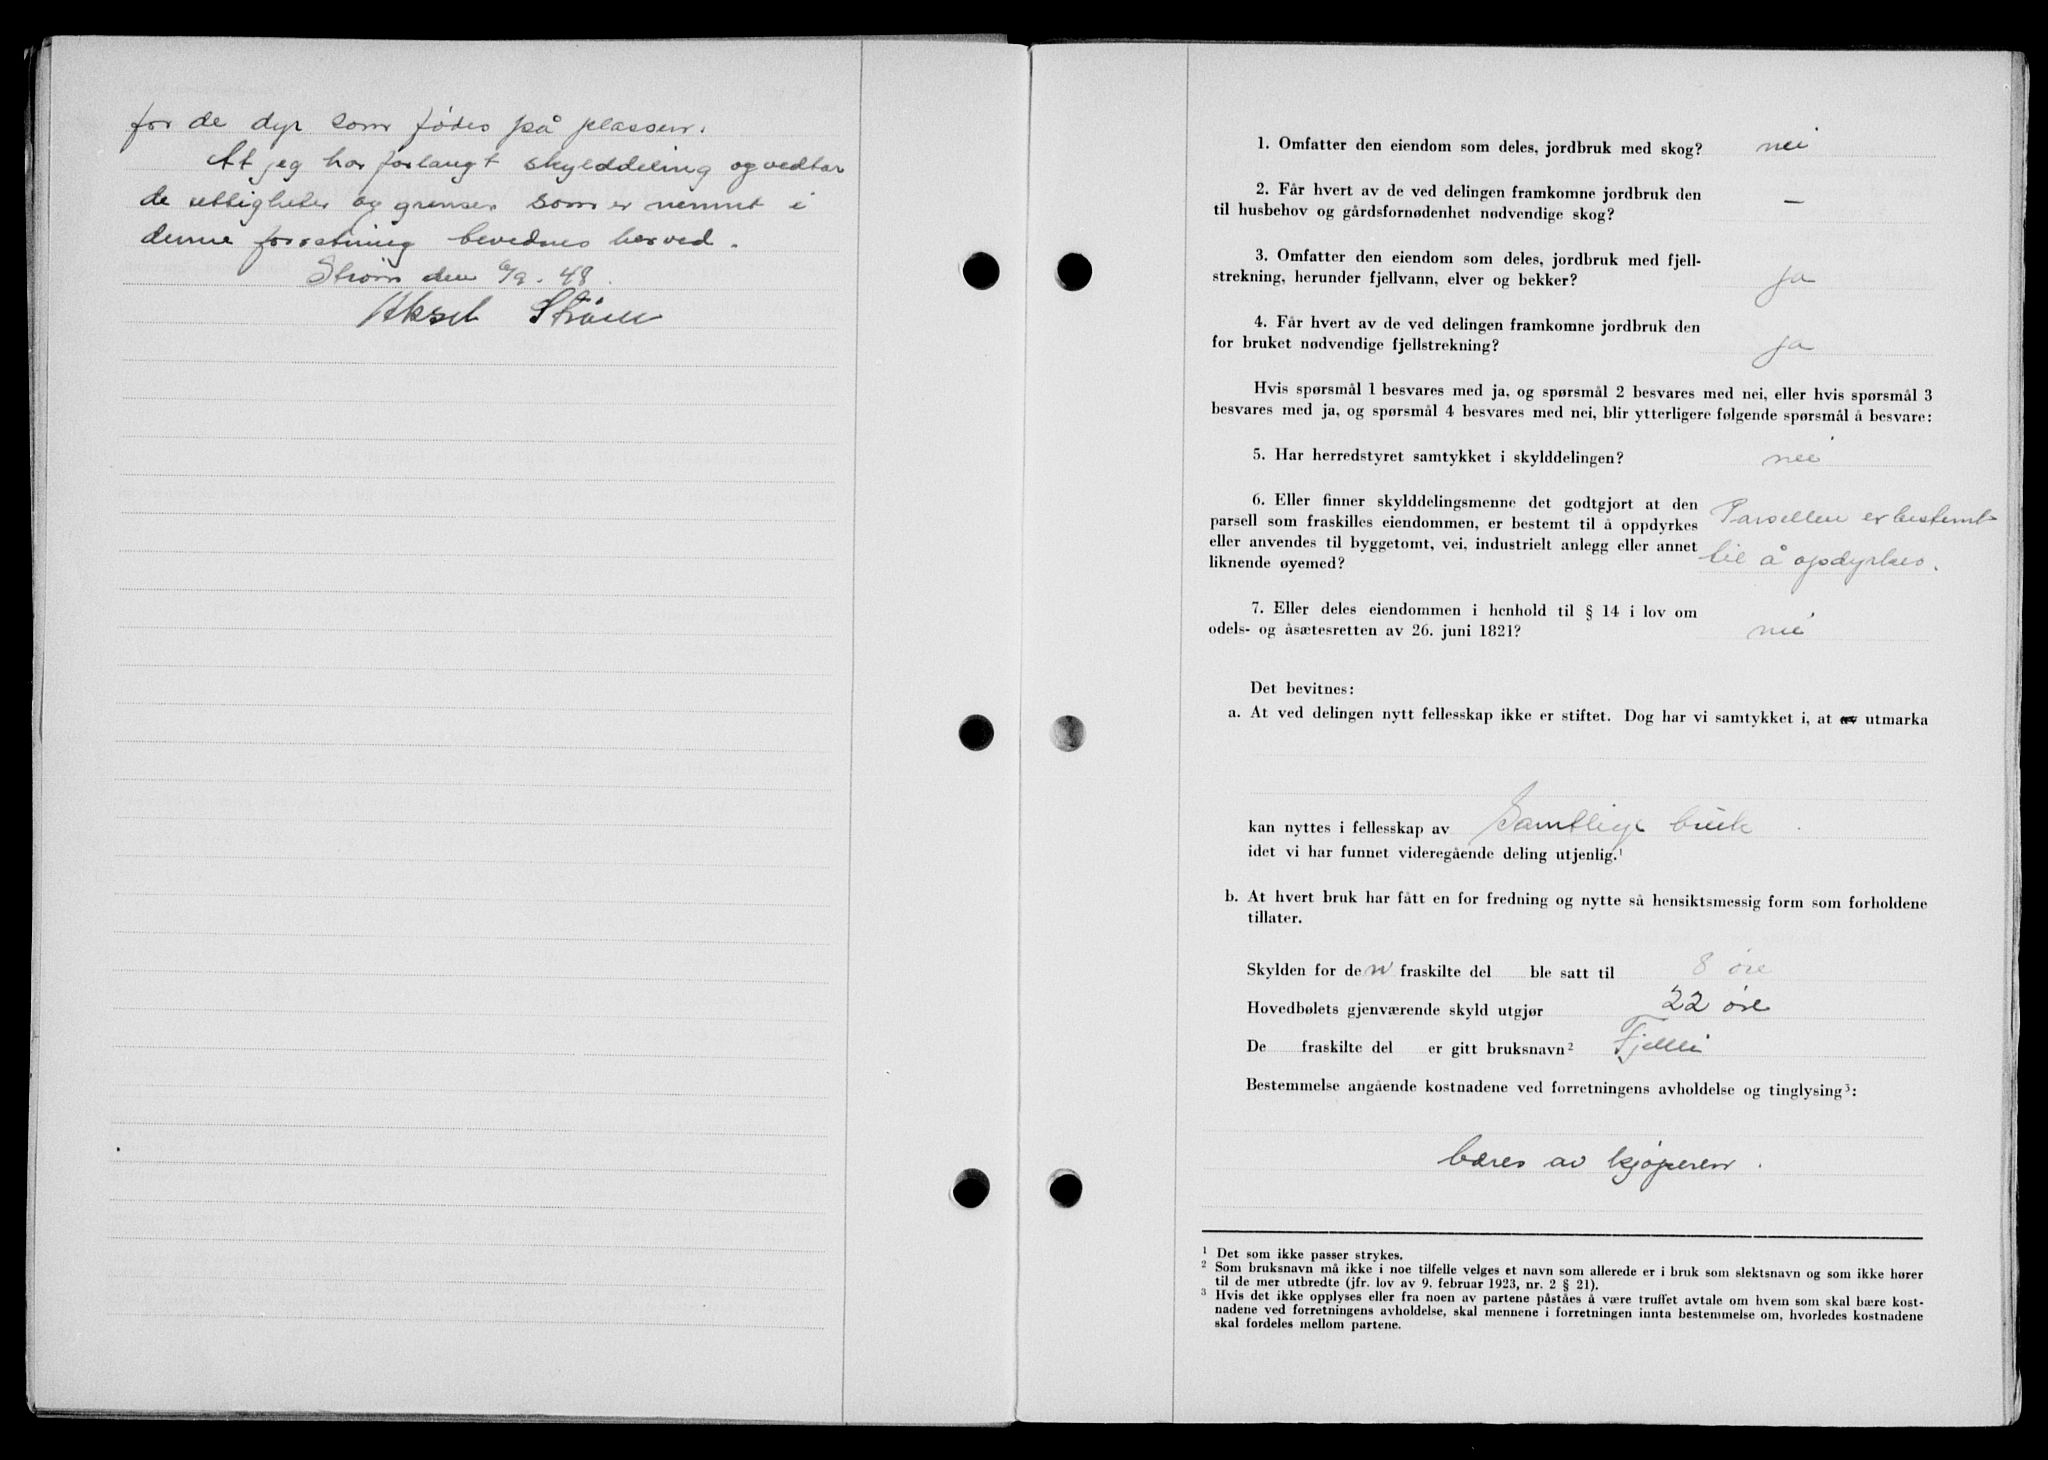 for de dyr som fødes på plassen.
At jeg har forlangt skylddeling og vedtar
de rettigheter og grenser som er nevnt i
denne forretning bevidnes herved.
Strøm den 6/9. 48.
Aksel Strøm
1. Omfatter den eiendom som deles, jordbruk med skog? nei
2. Får hvert av de ved delingen framkomne jordbruk den
til husbehov og gårdsfornødenhet nødvendige skog? –
3. Omfatter den eiendom som deles, jordbruk med fjell-
strekning, herunder fjellvann, elver og bekker? ja
4. Får hvert av de ved delingen framkomne jordbruk den
for bruket nødvendige fjellstrekning? ja
Hvis spørsmål 1 besvares med ja, og spørsmål 2 besvares med nei, eller hvis spørsmål 3
besvares med ja, og spørsmål 4 besvares med nei, blir ytterligere følgende spørsmål å besvare:
5. Har herredstyret samtykket i skylddelingen? nei
6. Eller finner skylddelingsmenne det godtgjort at den
parsell som fraskilles eiendommen, er bestemt til å oppdyrkes Parsellen er bestemt
eller anvendes til byggetomt, vei, industrielt anlegg eller annet
liknende øyemed? til å opdyrkes.
7. Eller deles eiendommen i henhold til § 14 i lov om
odels- og åsætesretten av 26. juni 1821? nei
Det bevitnes:
a. At ved delingen nytt fellesskap ikke er stiftet. Dog har vi samtykket i, at av utmarka
kan nyttes i fellesskap av Samtlige bruk.
idet vi har funnet videregående deling utjenlig.¹
b. At hvert bruk har fått en for fredning og nytte så hensiktsmessig form som forholdene
tillater.
Skylden for den fraskilte del ble satt til 8 øre
Hovedbølets gjenværende skyld utgjør 22 øre
De fraskilte del er gitt bruksnavn² Fjelli
Bestemmelse angående kostnadene ved forretningens avholdelse og tinglysing³:
bæres av kjøperen.
¹ Det som ikke passer strykes.
² Som bruksnavn må ikke i noe tilfelle velges et navn som allerede er i bruk som slektsnavn og som ikke hører
til de mer utbredte (jfr. lov av 9. februar 1923, nr. 2 § 21).
³ Hvis det ikke opplyses eller fra noen av partene påståes å være truffet avtale om hvem som skal bære kost-
nadene ved forretningens avholdelse, skal mennene i forretningen innta bestemmelse om, hvorledes kostnadene
skal fordeles mellom partene.